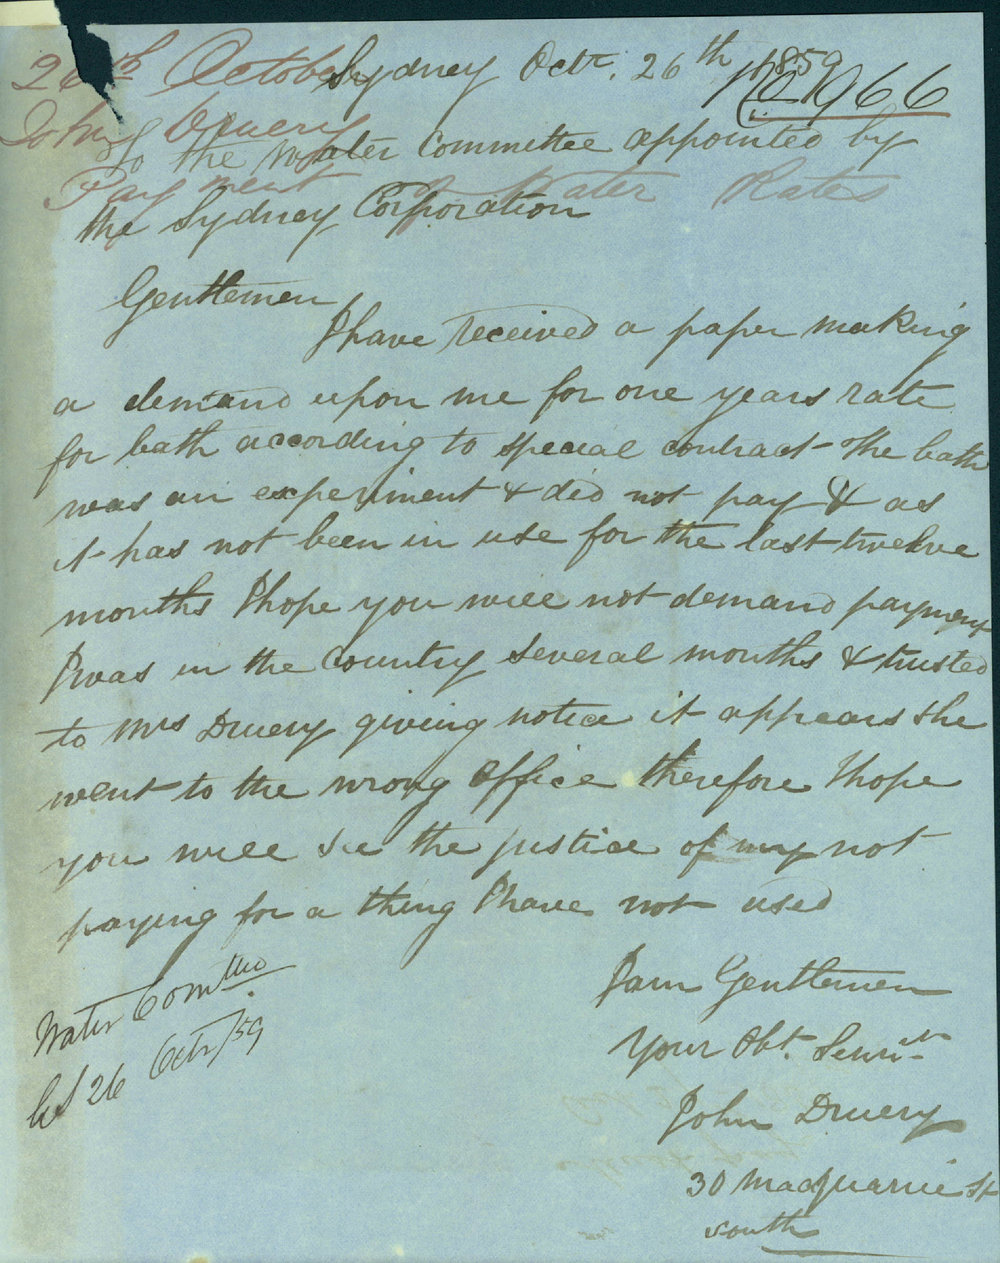 26th October
Sydney Octr. 26th 1859
No 966
John Druery
To the Water Committee appointed by
Payment of Water Rates
the Sydney Corporation
Gentlemen
I have received a paper making
a demand upon me for one years rate
for bath according to special contract - the bath
was an experiment & did not pay & as
it has not been in use for the last twelve
months I hope you will not demand payment
I was in the country several months & trusted
to Mrs Druery giving notice it appears she
went to the wrong office therefore I hope
you will see the justice of my not
paying for a thing I have not used
I am Gentlemen
Your Obt. Servt.
John Druery
30 Macquarie St
south
Water Comttee
26 Octr/59